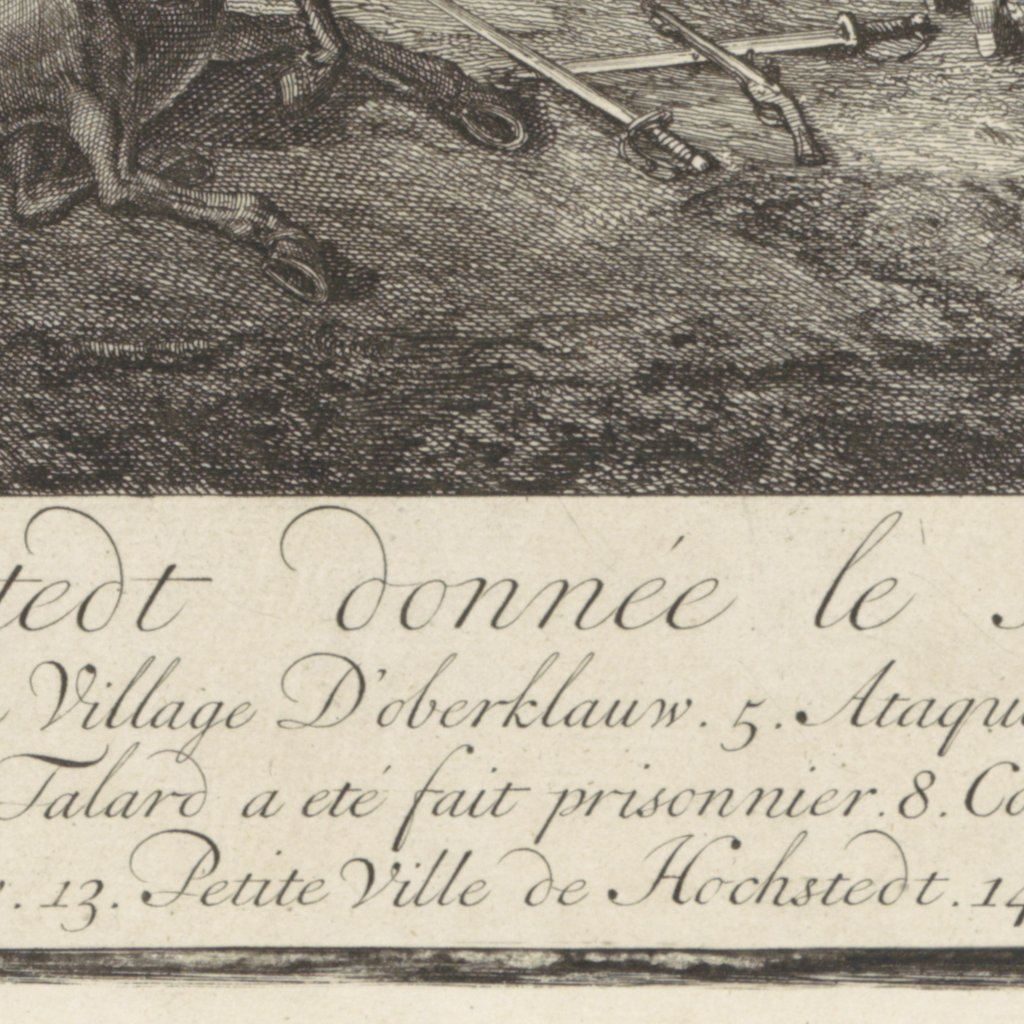 tedt donnée le
Village D'oberklauw. 5. Ataqu
Talard a eté fait prisonnier. 8. Co
. 13. Petite Ville de Hochstedt. 14